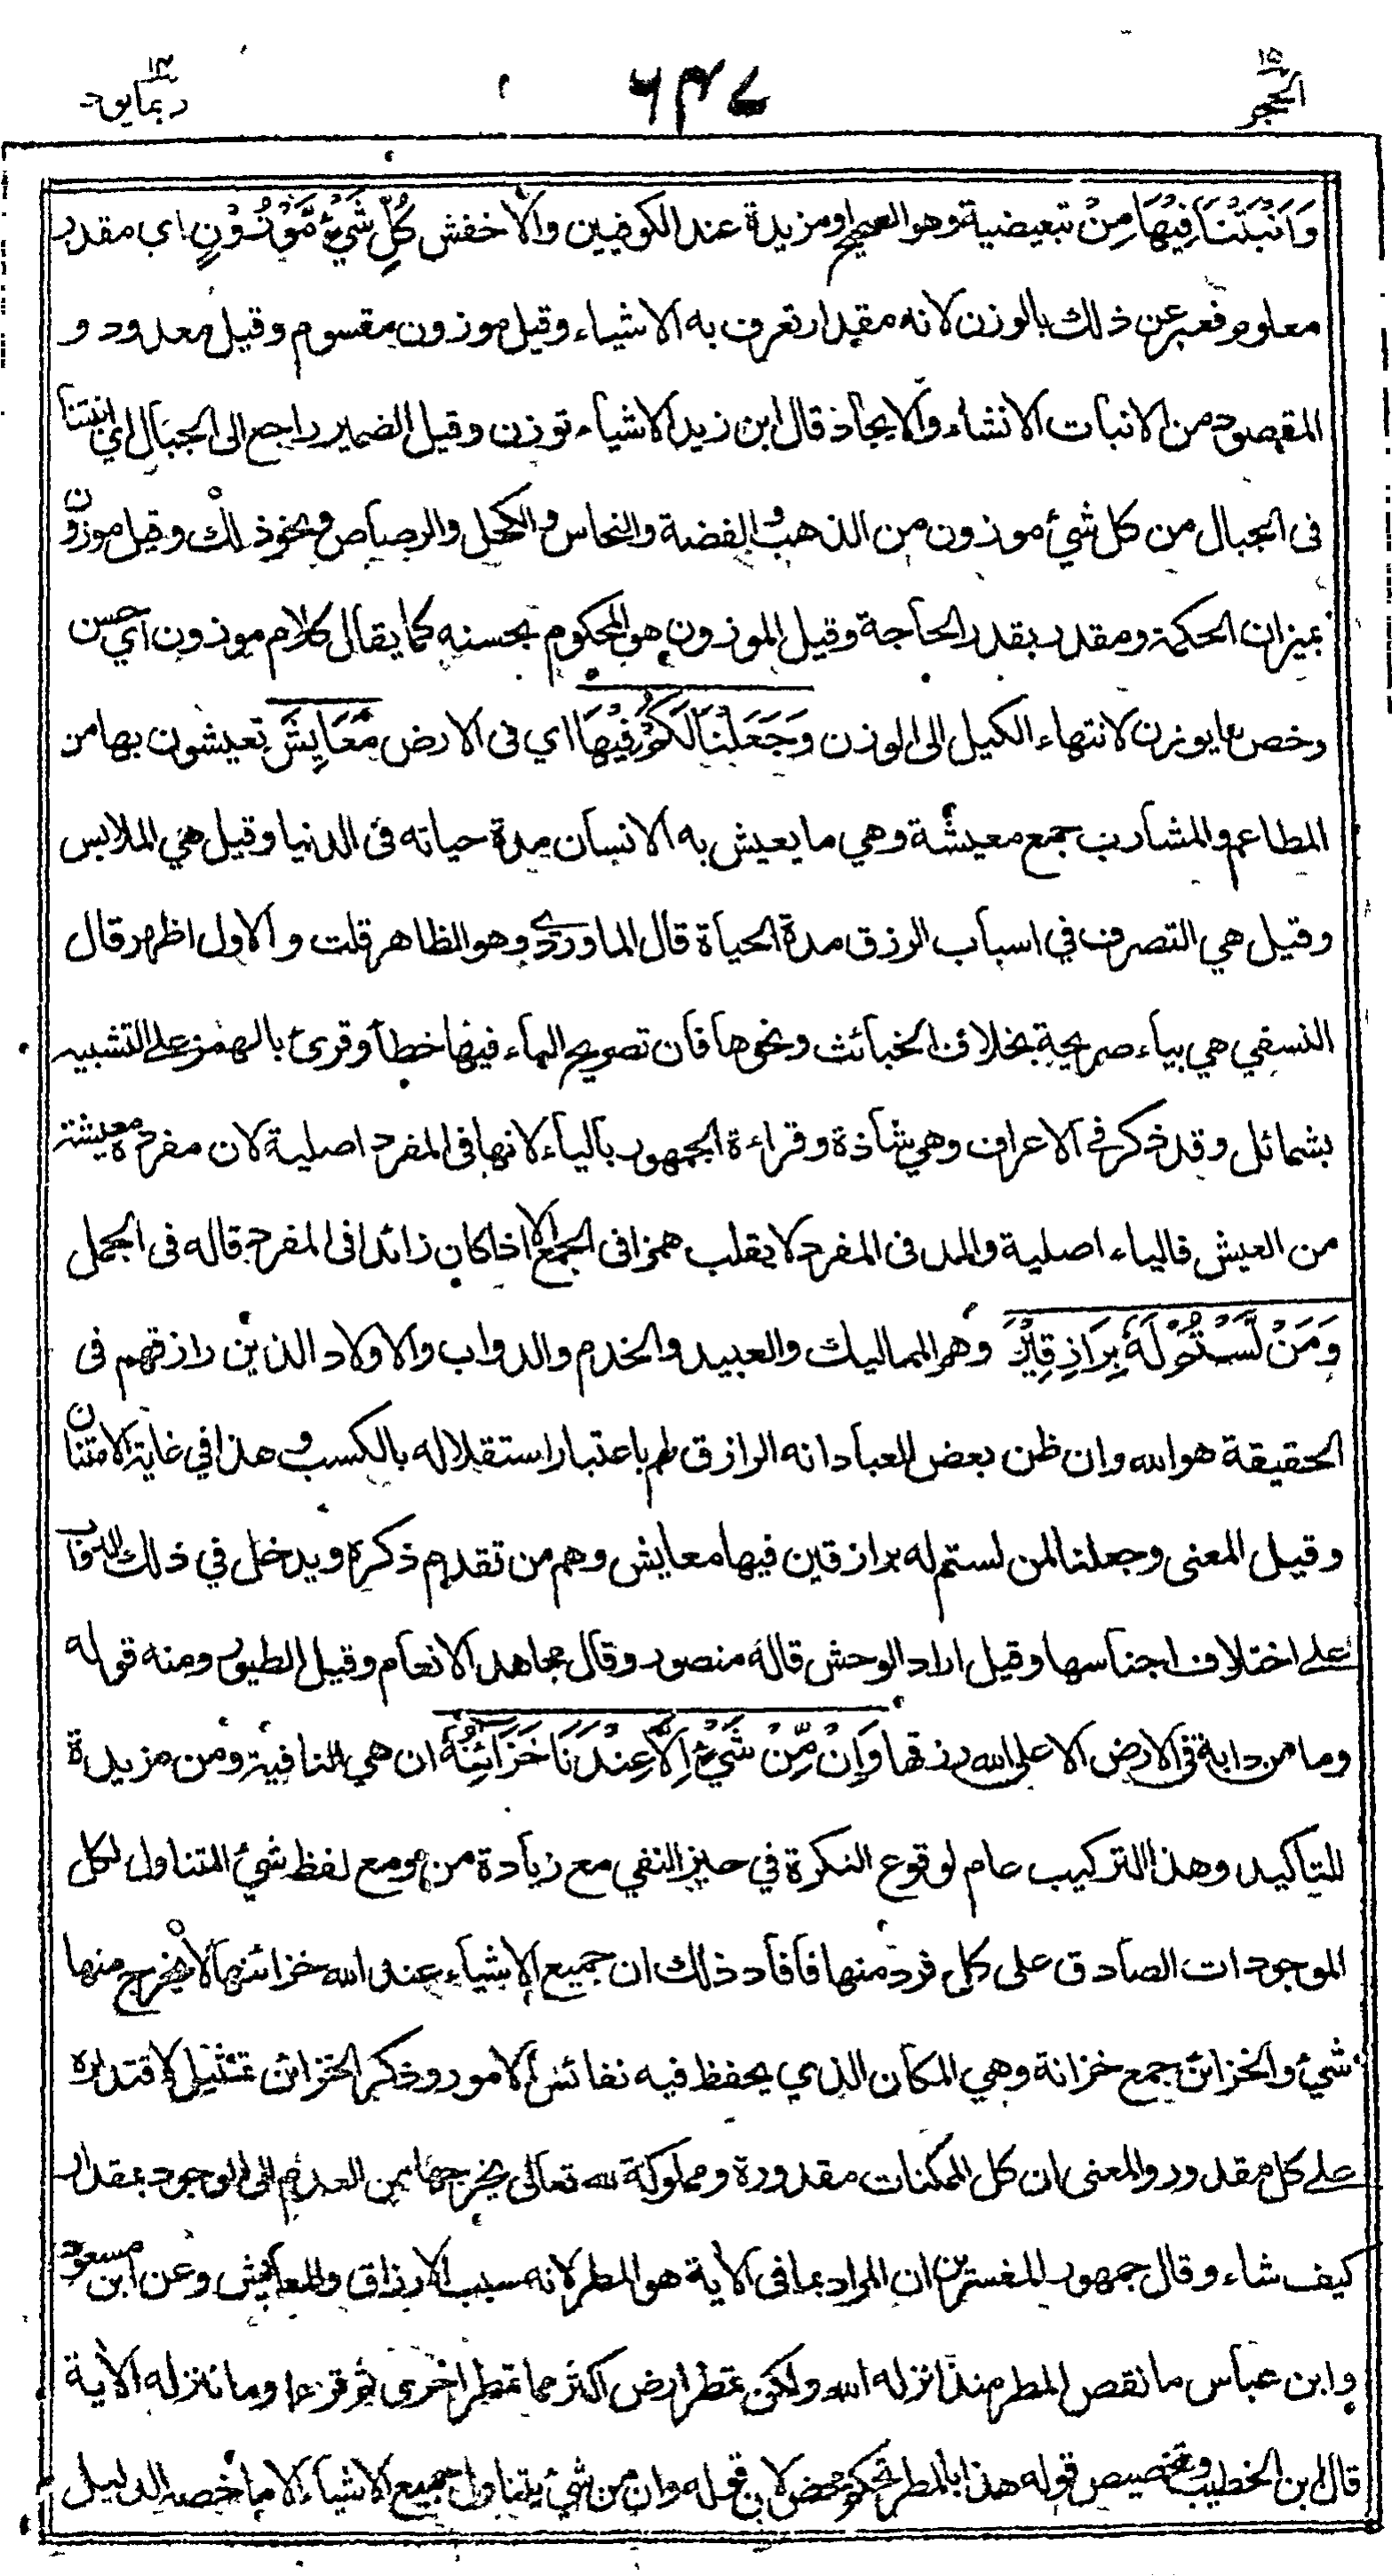 الحجر ١٥
٦٣٧
ربما يود ١٤
وَاَنْبَتْنَا فِيْهَا مِنْ تبعيضية وهو الصحيح او مزيدة عند الكوفيين والاخفش كُلِّ شَيْءٍ مَّوْزُوْنٍ اي مقدر
معلوم فعبر عن ذلك بالوزن لانه مقدار تعرف به الاشياء وقيل موزون مقسوم وقيل معدود و
المقصود من الانبات الانشاء والايجاد قال ابن زيد الاشياء توزن وقيل الضمير راجع الى الجبال اي انبتنا
فى الجبال من كل شئ موزون من الذهب والفضة والنحاس والكحل والرصاص ونحو ذلك وقيل موزون
بميزان الحكمة ومقدر بقدر الحاجة وقيل الموزون هو المحكوم بحسنه كما يقال كلام موزون اي حسن
وخص ما يوزن لانتهاء الكيل الى الوزن وَجَعَلْنَا لَكُمْ فِيْهَا اي فى الارض مَعَايِشَ تعيشون بها من
المطاعم والمشارب جمع معيشة وهي ما يعيش به الانسان مدة حياته فى الدنيا وقيل هي الملابس
وقيل هي التصرف في اسباب الرزق مدة الحياة قال الماوردي وهو الظاهر قلت والاول اظهر قال
النسفي هي بياء صريحة بخلاف الخبائث ونحوها فان تصريح الياء فيها خطأ وقرئ بالهمز على التشبيه
بشمائل وقد ذكر في الاعراف وهي شاذة وقراءة الجمهور بالياء لانها فى المفرد اصلية لان مفرده معيشة
من العيش فالياء اصلية والمد فى المفرد لا يقلب همزا فى الجمع الا اذا كان زائدا فى المفرد قاله فى الجمل
وَمَنْ لَّسْتُمْ لَهٗ بِرَازِقِيْنَ وهم المماليك والعبيد والخدم والدواب والاولاد الذين رازقهم فى
الحقيقة هو الله وان ظن بعض العباد انه الرازق لهم باعتبار استقلاله بالكسب وهذا في غاية الامتنان
وقيل المعنى وجعلنا لمن لستم له برازقين فيها معايش وهم من تقدم ذكره ويدخل في ذلك الدواب
على اختلاف اجناسها وقيل اراد الوحش قاله منصور وقال مجاهد الانعام وقيل الطيور ومنه قوله
وما من دابة فى الارض الا على الله رزقها وَاِنْ مِّنْ شَيْءٍ اِلَّا عِنْدَنَا خَزَائِنُهٗ ان هي النافية ومن مزيدة
للتاكيد وهذا التركيب عام لوقوع النكرة في حيز النفي مع زيادة من ومع لفظ شئ المتناول لكل
الموجودات الصادق على كل فرد منها فافاد ذلك ان جميع الاشياء عند الله خزائنها لا يخرج منها
شئ والخزائن جمع خزانة وهي المكان الذي يحفظ فيه نفائس الامور وذكر الخزائن تمثيل لاقتداره
على كل مقدور والمعنى ان كل الممكنات مقدورة ومملوكة لله تعالى يخرجها من العدم الى الوجود بمقدار
كيف شاء وقال جمهور المفسرين ان المراد بما فى الاية هو المطر لانه سبب الارزاق والمعايش وعن ابن مسعود
وابن عباس ما نقص المطر منذ انزله الله ولكن تمطر ارض اكثر مما تمطر اخرى ثم قرءا وما ننزله الاية
قال ابن الخطيب وتخصيص قوله هذا بالمطر تحكم محض لان قوله وان من شئ يتناول جميع الاشياء الا ما خصه الدليل